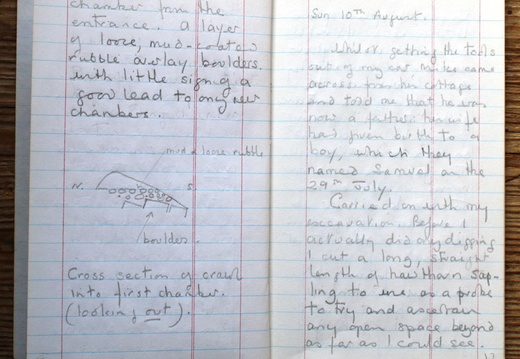 chamber from the
entrance. A layer
of loose, mud-coated
rubble overlay boulders
with little sign of a
good lead to any new
chambers.
mud & loose rubble
N.
S
boulders.
Cross section of crawl
into first chamber.
(looking out).
Sun 10th August.
Whilst getting the tools
out of my car Mike came
across from his cottage
and told me that he was
now a father: his wife
had given birth to a
boy, which they
named Samuel on the
29th July.
Carried on with my
excavation. Before I
actually did any digging
I cut a long, straight
length of hawthorn sap-
ling to use as a probe
to try and ascertain
any open space beyond
as far as I could see.